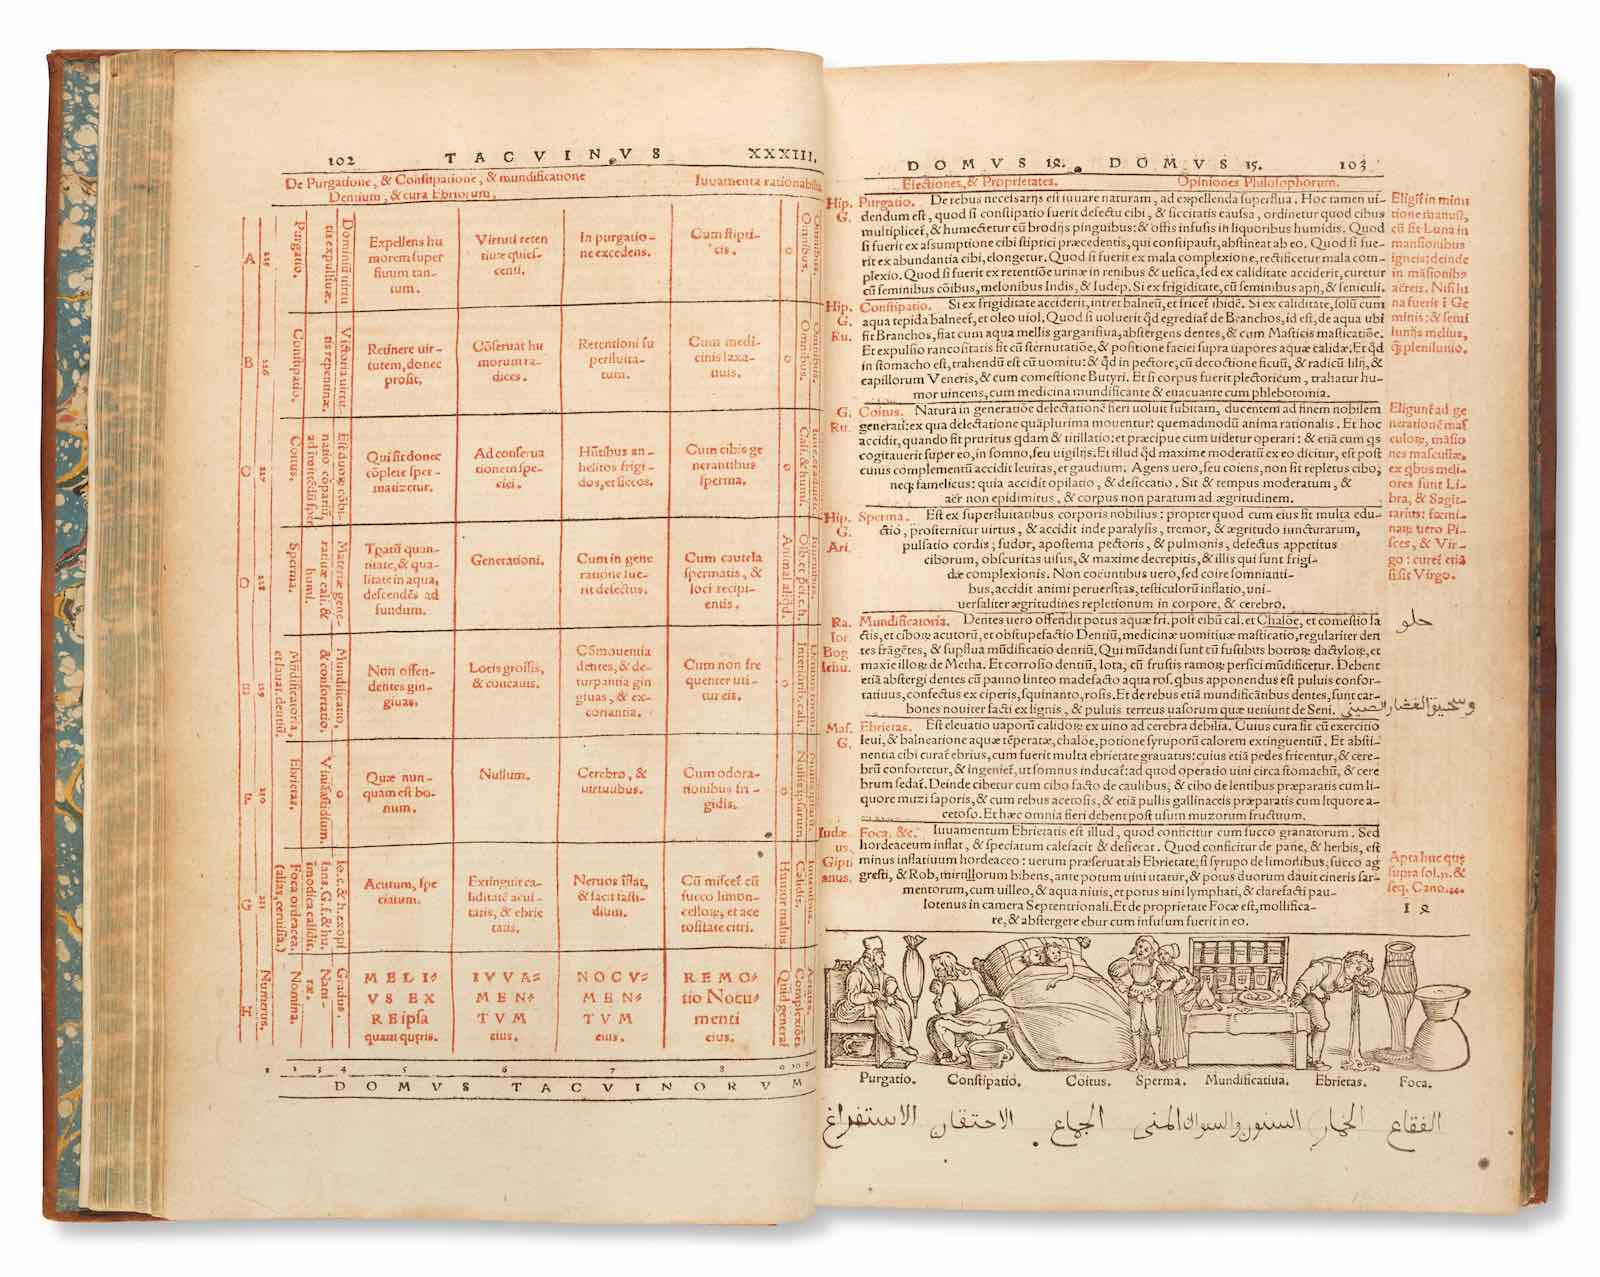 102 TACVINVS XXXIII.
De Purgatione, & Constipatione, & mundificatione
Dentium, & cura Ebriorum.
Iuuamenta rationabilia
A
Purgatio.
Expellens hu
morem super
fluum tan-
tum.
Virtuti reten
tiuæ quiesc-
centi.
In purgatio-
ne excedens.
Cum stipti-
cis.
Omnibus.
B
Constipatio.
Retinere uir-
tutem, donec
prosit.
Cõseruat hu
morum ra-
dices.
Retentioni su
perfluita-
tum.
Cum medi-
cinis laxa-
tiuis.
Omnibus.
C
Coitus.
Qui fit donec
cõplete sper-
matizetur.
Ad conserua
tionem spe-
ciei.
Hñtibus an-
helitos frigi-
dos, et siccos.
Cum cibis ge
nerantibus
sperma.
D
Sperma.
quan-
titate, & qua-
litate in aqua,
descendẽs ad
fundum.
Generationi.
Cum in gene
ratione fue-
rit defectus.
Cum cautela
spermatis, &
loci recipi-
entis.
E
Mundificatio,
& confortatio,
Non offen-
dentes gin-
giuas.
Locis grossis,
& concauis.
Cõmouentia
dentes, & de-
turpantia gin
giuas, & ex-
coriantia.
Cum non fre
quenter uti-
tur eis.
F
Ebrietas.
Quæ nun-
quam est bo-
num.
Nullum.
Cerebro, &
uirtutibus.
Cum odora-
tionibus fri-
gidis.
G
Foca ordeacea.
(alias, ceruisia.)
Acutum, spe
ciatum.
Extinguit ca-
liditatẽ acui-
tatis, & ebrie
tatis.
Neruos ĩflat,
& facit fasti-
dium.
Cũ miscet̃ cũ
succo limon-
cellorꝝ, et ace
tositate citri.
H
Numerus.
Nomina.
Natu-
ræ.
Gradus.
MELI-
VS EX
REipsa
quam quęris.
IVVA-
MEN-
TVM
eius.
NOCV-
MEN-
TVM
eius.
REMO-
tio Nocu-
menti
eius.
Complexiões
Quid generat
1 2 3 4 5 6 7 8 9 10 11
DOMVS TACVINORVM
DOMVS 12. DOMVS 15. 103
Electiones, & Proprietates. Opiniones Philosophorum.
Hip. Purgatio. De rebus necessarijs est iuuare naturam, ad expellenda superflua. Hoc tamen ui-
G. dendum est, quod si constipatio fuerit defectu cibi, & siccitatis caussa, ordinetur quod cibus
multiplicet̃, & humectetur cũ brodijs pinguibus: & offis infusis in liquoribus humidis. Quod
si fuerit ex assumptione cibi stiptici præcedentis, qui constipauit, abstineat ab eo. Quod si fue-
rit ex abundantia cibi, elongetur. Quod si fuerit ex mala complexione, rectificetur mala com-
plexio. Quod si fuerit ex retentiõe urinæ in renibus & uesica, sed ex caliditate acciderit, curetur
cũ seminibus cõibus, melonibus Indis, & Iudep. Si ex frigiditate, cũ seminibus apij, & feniculi.
Hip. Constipatio. Si ex frigiditate acciderit, intret balneũ, et fricet̃ ibidẽ. Si ex caliditate, solũ cum
G. aqua tepida balneet̃, et oleo uiol. Quod si uoluerit qd̃ egrediat̃ de Branchos, id est, de aqua ubi
Ru. fit Branchos, fiat cum aqua mellis gargarisma, abstergens dentes, & cum Masticis masticatiõe.
Et expulsio rancositatis fit cũ sternutatiõe, & positione faciei supra uapores aquæ calidæ. Et qd̃
in stomacho est, trahendũ est cũ uomitu: & qd̃ in pectore, cũ decoctione ficuũ, & radicũ lilij, &
capillorum Veneris, & cum comestione Butyri. Et si corpus fuerit plectoricum, trahatur hu-
mor uincens, cum medicina mundificante & euacuante cum phlebotomia.
G. Coitus. Natura in generatiõe delectationẽ fieri uoluit subitam, ducentem ad finem nobilem
Ru. generati: ex qua delectatione quãplurima mouentur: quemadmodũ anima rationalis. Et hoc
accidit, quando fit pruritus qdam & titillatio: et præcipue cum uidetur operari: & etiã cum qs
cogitauerit super eo, in somno, seu uigilijs. Et illud qd̃ maxime moderatũ ex eo dicitur, est post
cuius complementũ accidit leuitas, et gaudium. Agens uero, seu coiens, non sit repletus cibo,
neq; famelicus: quia accidit opilatio, & desiccatio. Sit & tempus moderatum, &
aër non epidimitus, & corpus non paratum ad ægritudinem.
Hip. Sperma. Est ex superfluitatibus corporis nobilius: propter quod cum eius fit multa edu-
G. ctio, prosternitur uirtus, & accidit inde paralysis, tremor, & ægritudo iuncturarum,
Ari. pulsatio cordis, sudor, apostema pectoris, & pulmonis, defectus appetitus
ciborum, obscuritas uisus, & maxime decrepitis, & illis qui sunt frigi-
dæ complexionis. Non coëuntibus uero, sed coire somnianti-
bus, accidit animi peruersitas, testiculorũ inflatio, uni-
uersaliter ægritudines repletionum in corpore, & cerebro.
Ra. Mundificatoria. Dentes uero offendit potus aquæ fri. post cibũ cal. et Chalöe, et comestio la
Ior. ctis, et ciborꝝ acutorũ, et obstupefactio Dentiũ, medicinæ uomitiuæ masticatio, regulariter den
Bog tes frãgẽtes, & supflua mũdificatio dentiũ, Qui mũdandi sunt cũ fustibus borrorꝝ dactylorꝝ, et
Iehu. maxie illorꝝ de Metha. Et corrosio dentiũ, lota, cũ frustis ramorꝝ persici mũdificetur. Debent
etiã abstergi dentes cũ panno linteo madefacto aqua ros. qbus apponendus est puluis confor-
tatiuus, confectus ex ciperis, squinanto, rosis. Et de rebus etiã mundificãtibus dentes, sunt car-
bones nouiter facti ex lignis, & puluis terreus uasorum quæ ueniunt de Seni.
حلو
وسحيق الغضار الصيني
Mas. Ebrietas. Est eleuatio uaporũ calidorꝝ ex uino ad cerebra debilia. Cuius cura fit cũ exercitio
G. leui, & balneatione aquæ tẽperatæ, chalöe, potione syruporũ calorem extinguentiũ. Et absti-
nentia cibi curat̃ ebrius, cum fuerit multa ebrietate grauatus: cuius etiã pedes fricentur, & cere-
brũ confortetur, & ingeniet̃, ut somnus inducat̃: ad quod operatio uini circa stomachũ, & cere
brum sedat̃. Deinde cibetur cum cibo facto de caulibus, & cibo de lentibus præparatis cum li-
quore muzi saporis, & cum rebus acetosis, & etiã pullis gallinaceis præparatis cum liquore a-
cetoso. Et hæc omnia fieri debent post usum muzorum fructuum.
Iudæ Foca. &c. Iuuamentum Ebrietatis est illud, quod conficitur cum succo granatorum. Sed
us. hordeaceum inflat, & speciatum calefacit & desiccat. Quod conficitur de pane, & herbis, est
Gipti minus inflatiuum hordeaceo: uerum præseruat ab Ebrietate, si syrupo de limonibus, succo ag
anus. gresti, & Rob, mirtillorum bibens, ante potum uini utatur, & potus duorum dauit cineris sar-
mentorum, cum uilleo, & aqua niuis, et potus uini lymphati, & clarefacti pau-
lotenus in camera Septentrionali. Et de proprietate Focæ est, mollifica-
re, & abstergere ebur cum infusum fuerit in eo.
Eligit̃ in minu
tione manuũ,
cũ sit Luna in
mansionibus
igneis: deinde
in mãsionibꝰ
aëreis. Nisi lu
na fuerit ĩ Ge
minis: & semi
lunijs melius,
q̃ plenilunio.
Eligunt̃ ad ge
nerationẽ mas
culorꝝ, mãsio
nes masculiæ,
ex qbus meli-
ores sunt Li-
bra, & Sagit-
tarius: fœmi-
narꝝ uero Pi-
sces, & Vir-
go: curet̃ etiã
si sit Virgo.
Apta huc quę
supra fol. n. &
seq. Cano.
12
Purgatio. Constipatio. Coitus. Sperma. Mundificatiua. Ebrietas. Foca.
الاستفراغ الاحتقان الجماع المني السنون والسواك الخمار الفقاع